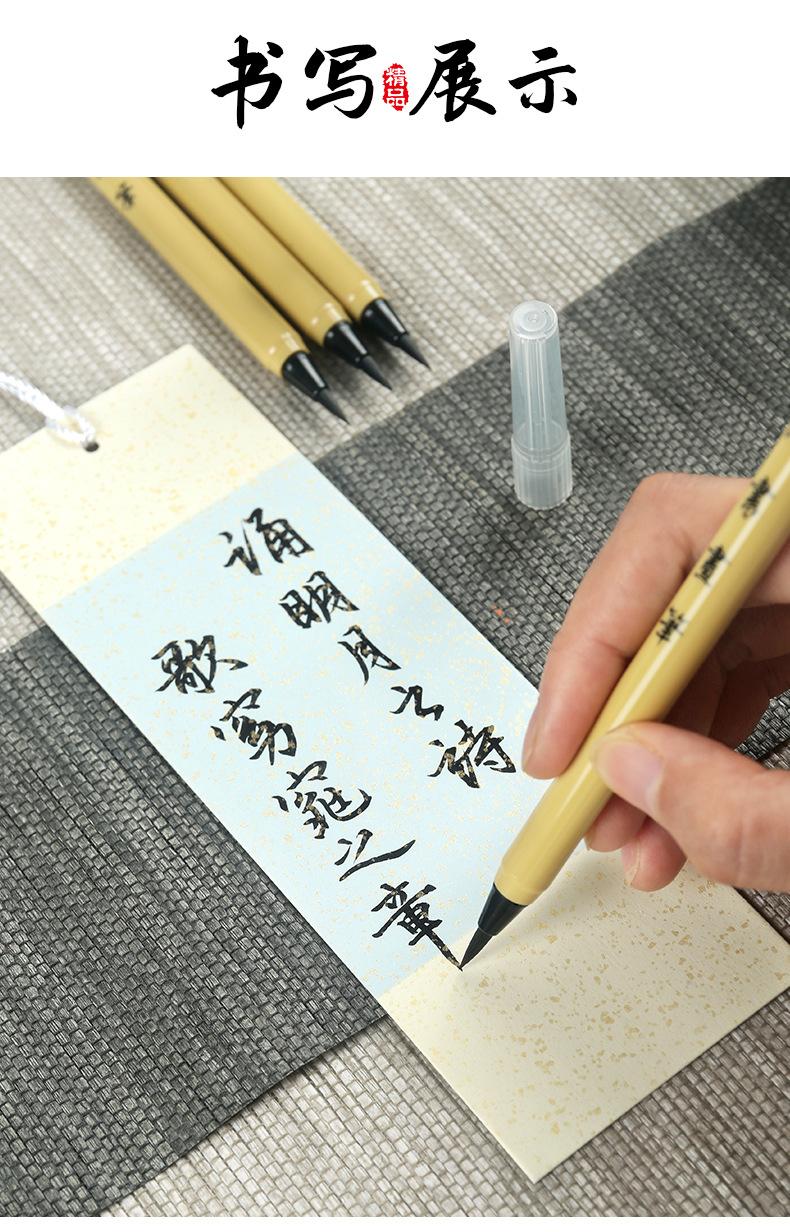 书写精品展示
诵明月之诗
歌窈窕之章